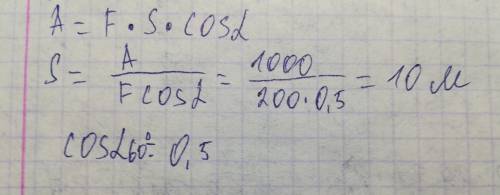 A = F • S • COSα
S = A / F COSα = 1000 / 200 • 0,5 = 10 м
COSα 60° = 0,5